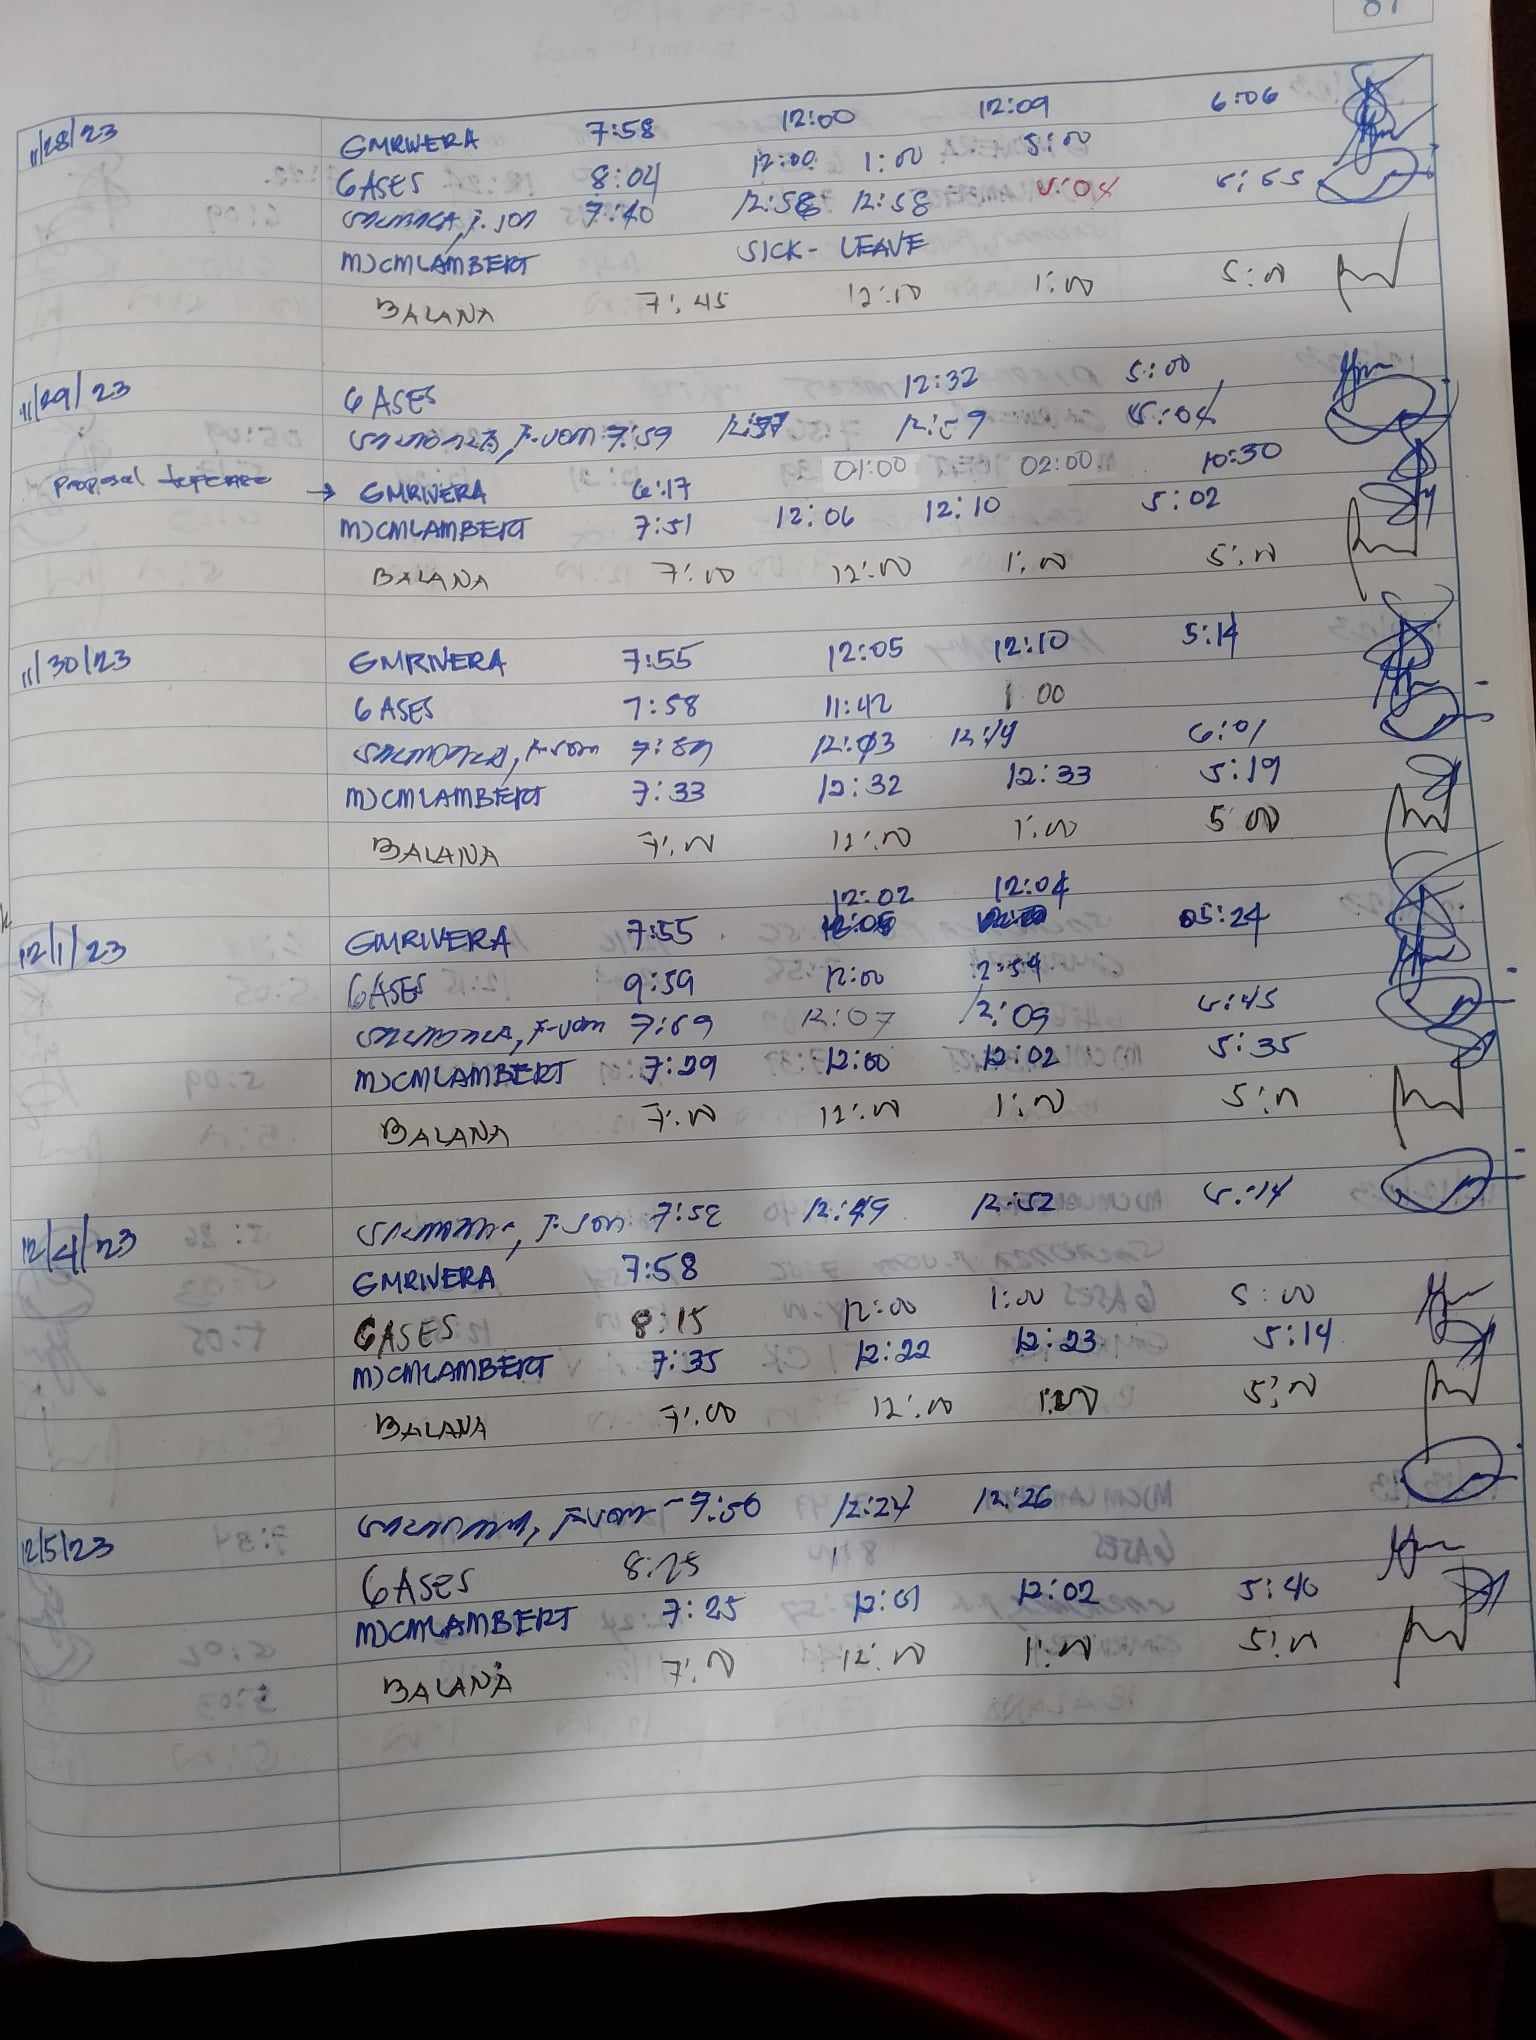 11/28/23 GMRIVERA 7:58 12:00 12:09 6:06
GASES 8:04 12:00 1:00 5:00
7:40 12:58 12:58 5:04 5:55
MJCMLAMBERT SICK- LEAVE
BALANA 7:45 12:00 1:00 5:00
11/29/23 GASES 12:32 5:00
7:59 12:57 12:59 5:04
Proposal → GMRIVERA 6:17 01:00 02:00 10:30
MJCMLAMBERT 7:51 12:06 12:10 5:02
BALANA 7:00 12:00 1:00 5:00
11/30/23 GMRIVERA 7:55 12:05 12:10 5:14
GASES 7:58 11:42 1:00
12:03 12:19 6:01
MJCMLAMBERT 7:33 12:32 12:33 5:19
BALANA 7:00 12:00 1:00 5:00
12:02 12:04
12/1/23 GMRIVERA 7:55 05:24
GASES 9:59 12:00 12:59
7:59 12:07 12:09 5:45
MJCMLAMBERT 7:29 12:00 12:02 5:35
BALANA 7:00 12:00 1:00 5:00
12/4/23 7:52 12:49 12:52 5:14
GMRIVERA 7:58
GASES 8:15 12:00 1:00 5:00
MJCMLAMBERT 7:35 12:22 12:23 5:14
BALANA 7:00 12:00 1:00 5:00
12/5/23 7:50 12:24 12:26
GASES 8:25
MJCMLAMBERT 7:25 12:01 12:02 5:40
BALANA 7:00 12:00 1:00 5:00